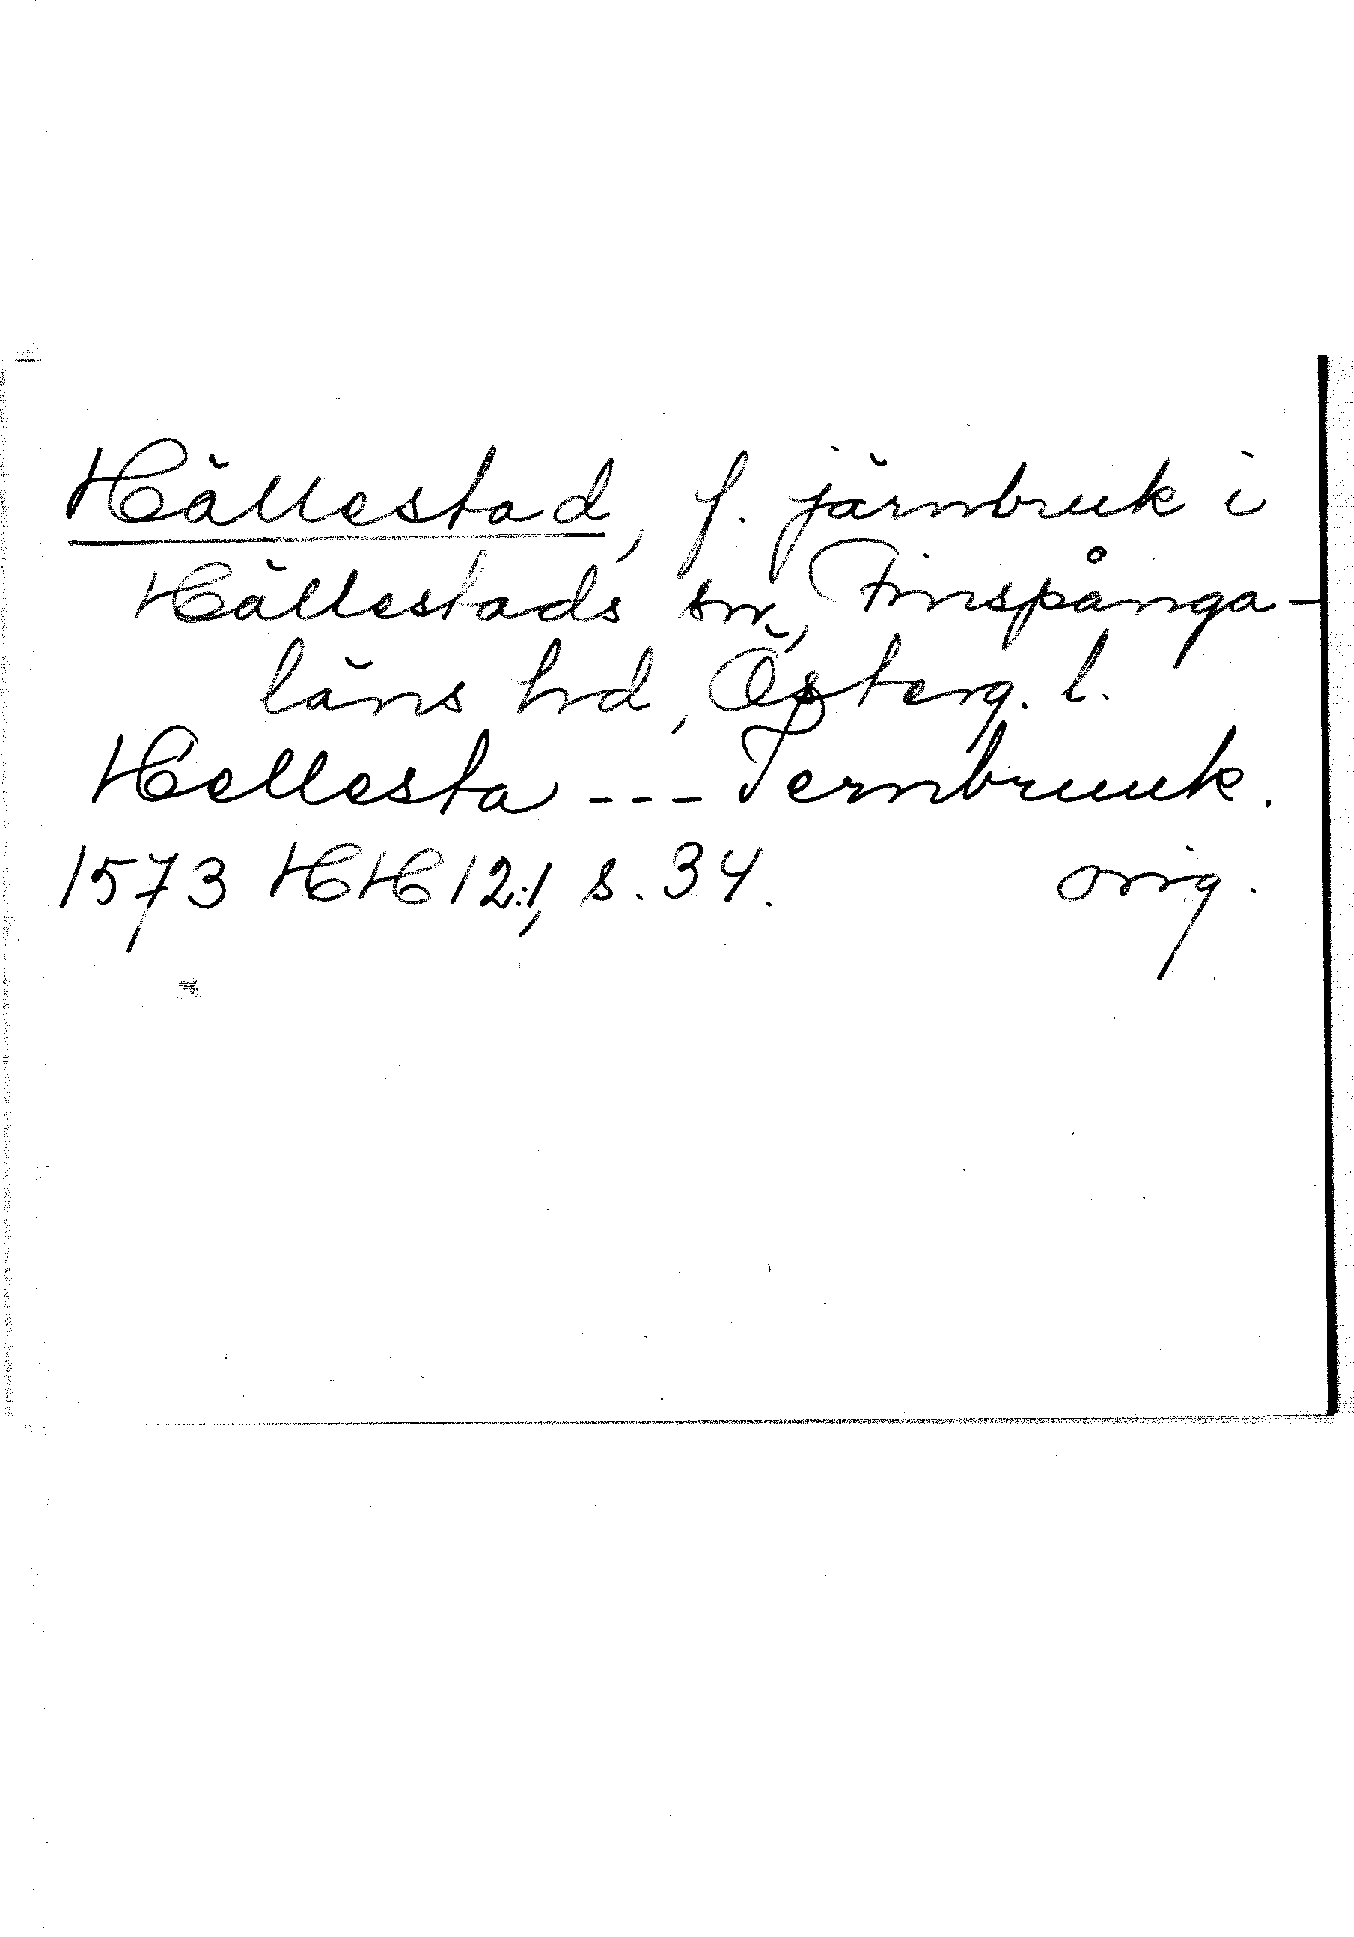 Hällestad, f. järnbruk i
Hällestads sn, Finspånga-
läns hd, Österg. l.
Hellesta --- Jernbruuk.
1573 HH 12:1, s. 34. orig.